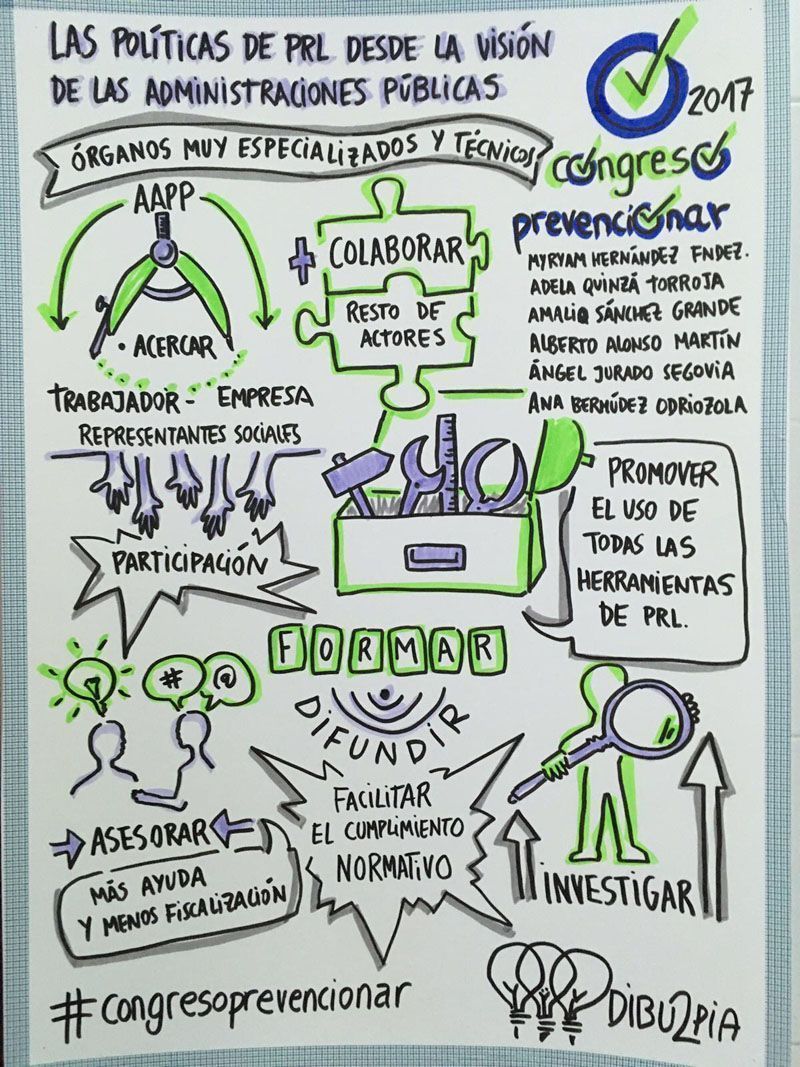 LAS POLÍTICAS DE PRL DESDE LA VISIÓN
DE LAS ADMINISTRACIONES PÚBLICAS
2017
congreso
prevencionar
ÓRGANOS MUY ESPECIALIZADOS Y TÉCNICOS
AAPP
• ACERCAR
TRABAJADOR - EMPRESA
REPRESENTANTES SOCIALES
+ COLABORAR
RESTO DE
ACTORES
MYRYAM HERNÁNDEZ FNDEZ.
ADELA QUINZÁ TORROJA
AMALIA SÁNCHEZ GRANDE
ALBERTO ALONSO MARTÍN
ÁNGEL JURADO SEGOVIA
ANA BERMÚDEZ ODRIOZOLA
PARTICIPACIÓN
PROMOVER
EL USO DE
TODAS LAS
HERRAMIENTAS
DE PRL.
FORMAR
DIFUNDIR
# @
ASESORAR
MÁS AYUDA
Y MENOS FISCALIZACIÓN
FACILITAR
EL CUMPLIMIENTO
NORMATIVO
INVESTIGAR
#congresoprevencionar
DIBU2PIA